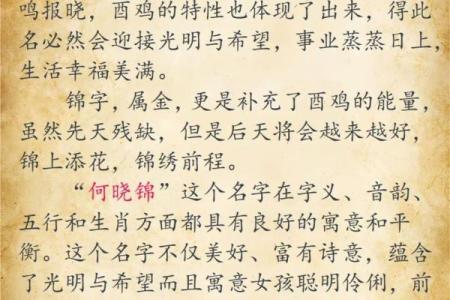 鸣报晓，酉鸡的特性也体现了出来，得此
名必然会迎接光明与希望，事业蒸蒸日上，
生活幸福美满。
锦字，属金，更是补充了酉鸡的能量，
虽然先天残缺，但是后天将会越来越好，
锦上添花，锦绣前程。
“何晓锦”这个名字在字义、音韵、
五行和生肖方面都具有良好的寓意和平
衡。这个名字不仅美好、富有诗意，蕴含
了光明与希望而且寓意女孩聪明伶俐，前